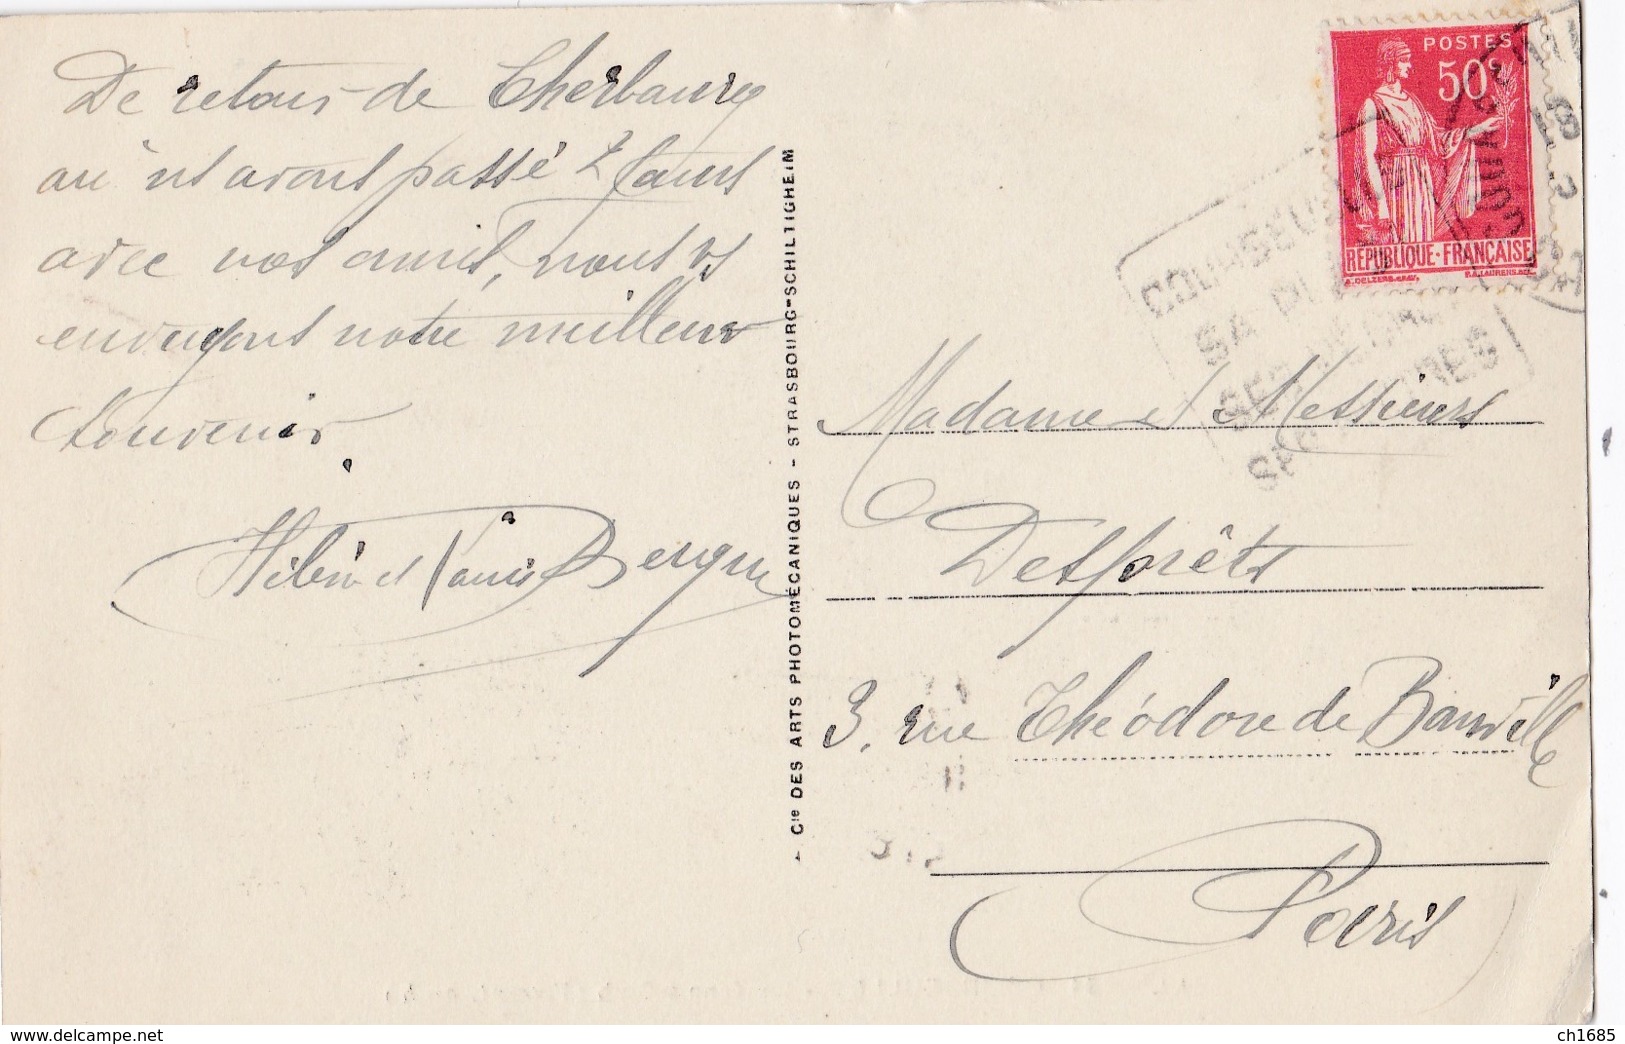 De retour de Cherbourg
où ns avons passé 2 jours
avec nos amis, nous vs
envoyons notre meilleur
souvenir
et Bergue
- Cie DES ARTS PHOTOMÉCANIQUES - STRASBOURG-SCHILTIGHEIM
POSTES
50c
RÉPUBLIQUE-FRANÇAISE
COURSEULLES
SA PLAGE
SES
Madame & Messieurs
Desprêts
3, rue Théodore de Banville
Paris
https://www.delcampe.net
ch1685